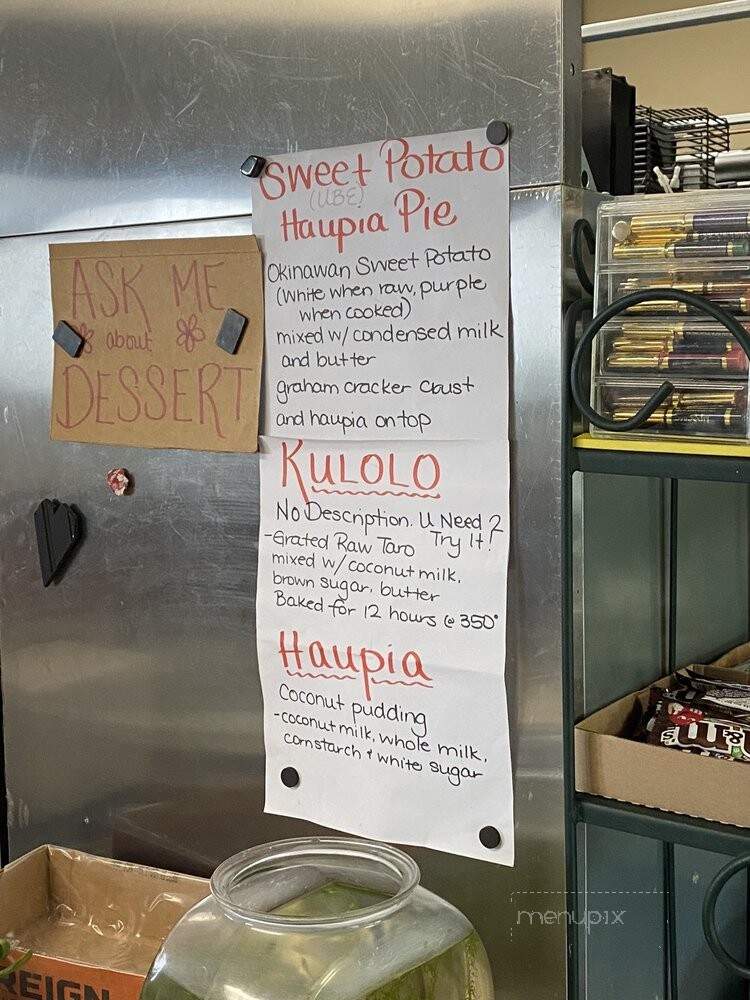 ASK ME
about
DESSERT
Sweet Potato
(UBE)
Haupia Pie
Okinawan Sweet Potato
(White when raw, purple
when cooked)
mixed w/ condensed milk
and butter
graham cracker crust
and haupia on top
KULOLO
No Description. U Need 2
Try It!
-Grated Raw Taro
mixed w/coconut milk,
brown sugar, butter
Baked for 12 hours @ 350°
Haupia
Coconut pudding
-coconut milk, whole milk,
cornstarch + white sugar
menupix
REIGN